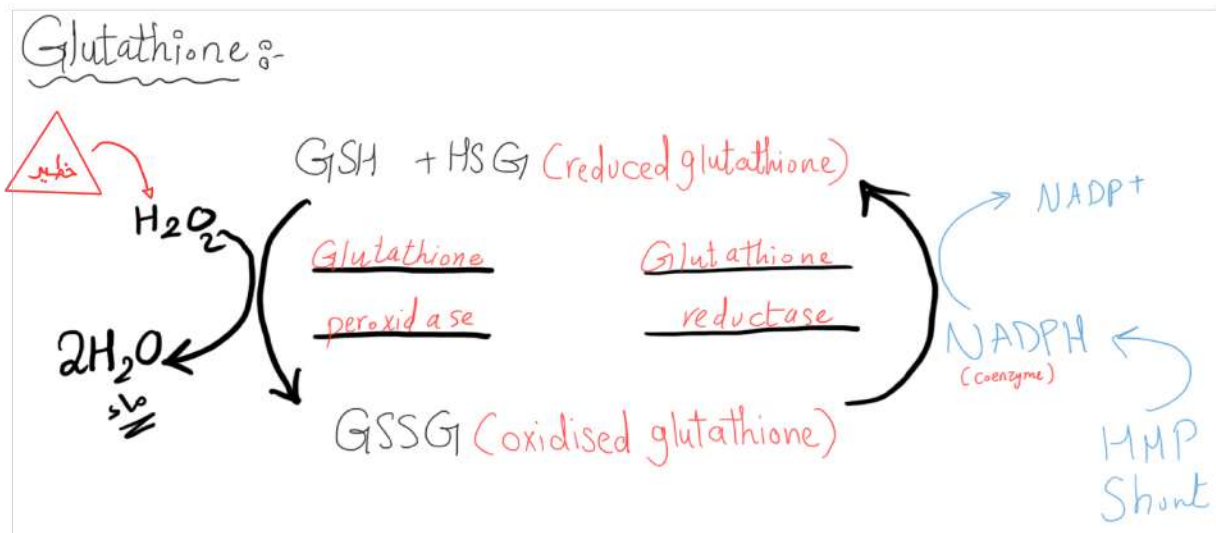 Glutathione :-
خطير
GSH + HSG (reduced glutathione)
H2O2
NADP+
Glutathione
peroxidase
Glutathione
reductase
2H2O
ماء
NADPH
(coenzyme)
GSSG (oxidised glutathione)
HMP
Shunt